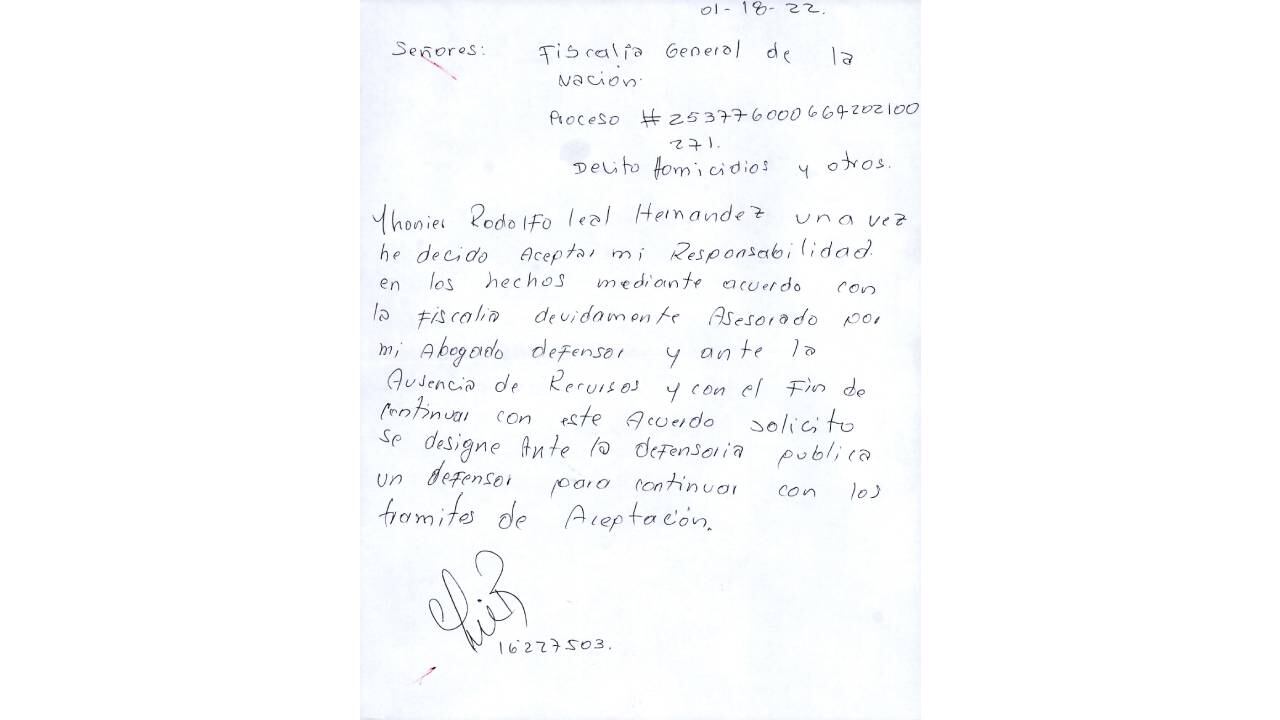 01-18-22.
Señores: Fiscalía General de la
Nación.
Proceso # 253776000664202100
271.
Delito Homicidios y otros.
Yhonier Rodolfo leal Hernandez una vez
he decido Aceptar mi Responsabilidad.
en los hechos mediante acuerdo con
la Fiscalia devidamente Asesorado por
mi Abogado defensor y ante la
Ausencia de Recursos y con el Fin de
continuar con este Acuerdo solicito
se designe Ante la defensoria publica
un defensor para continuar con los
tramites de Aceptación.
16227503.